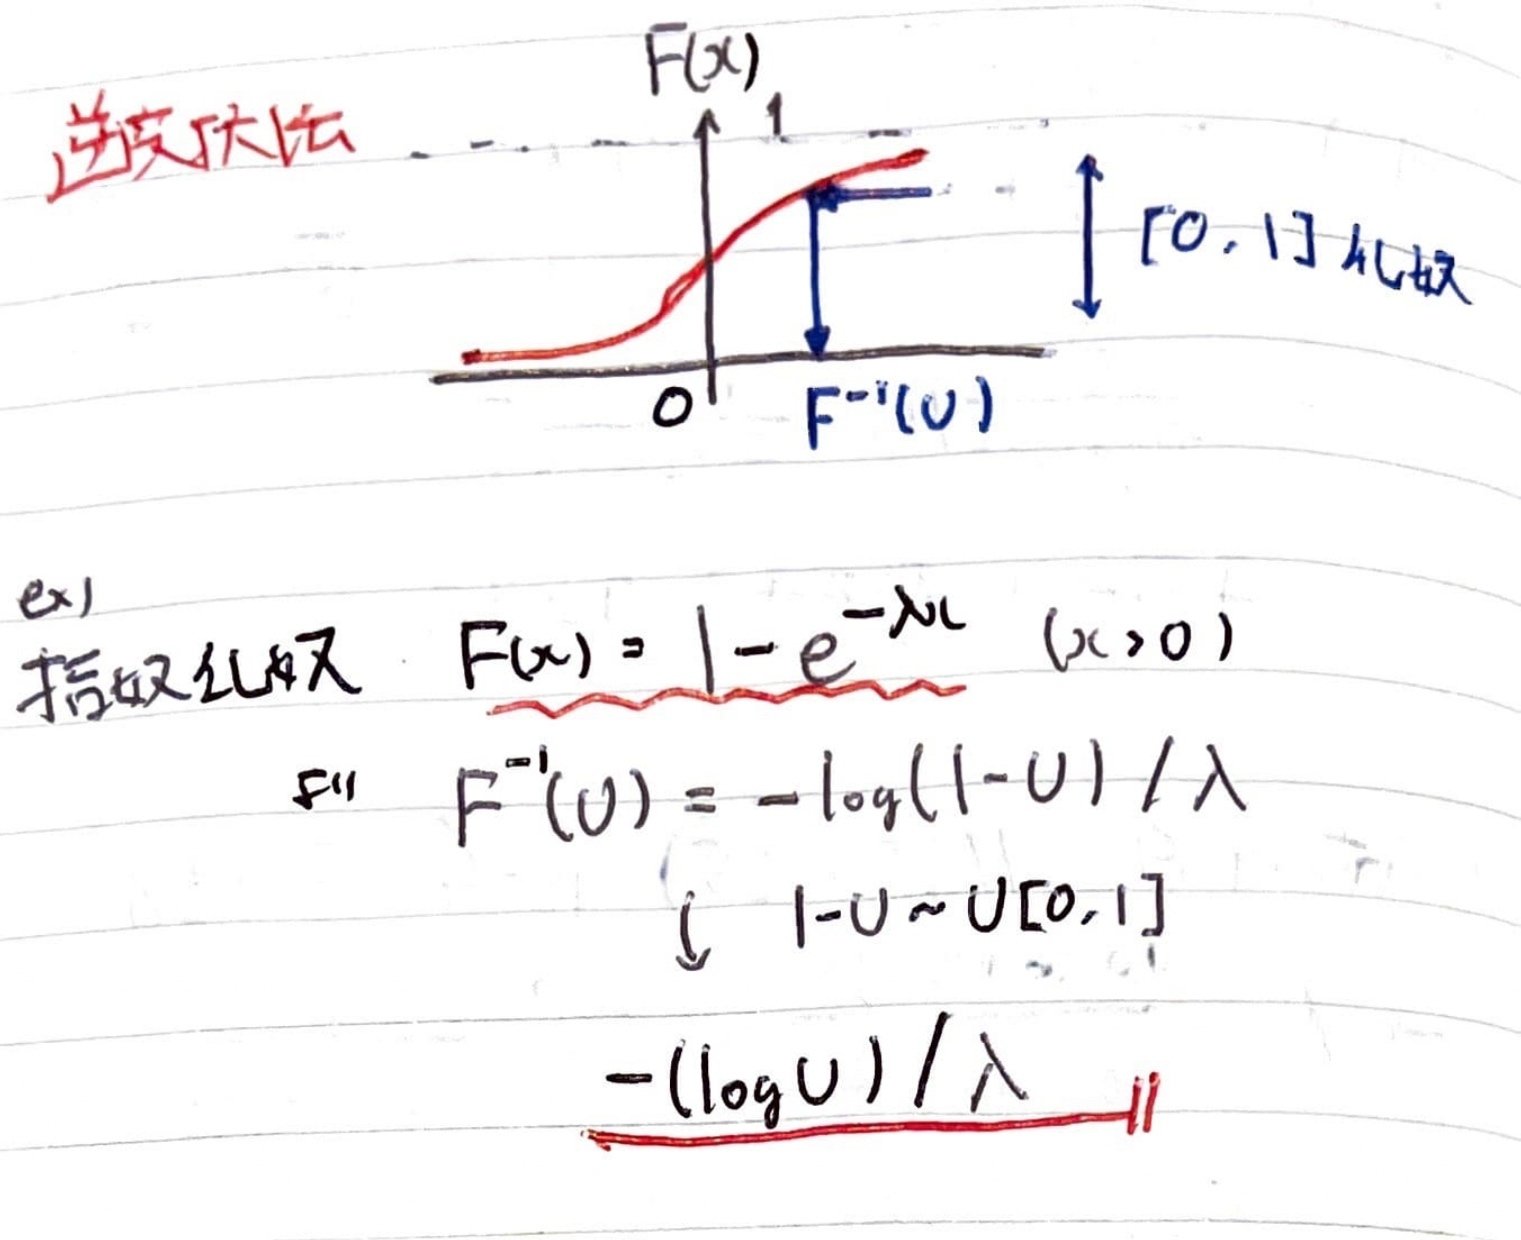 逆変換法
F(x)
1
[0,1]乱数
0
F⁻¹(U)
ex)
指数乱数 F(x) = 1 - e^{-λx} (x>0)
より F⁻¹(U) = -log(1-U)/λ
↓ 1-U ~ U[0,1]
-(log U)/λ